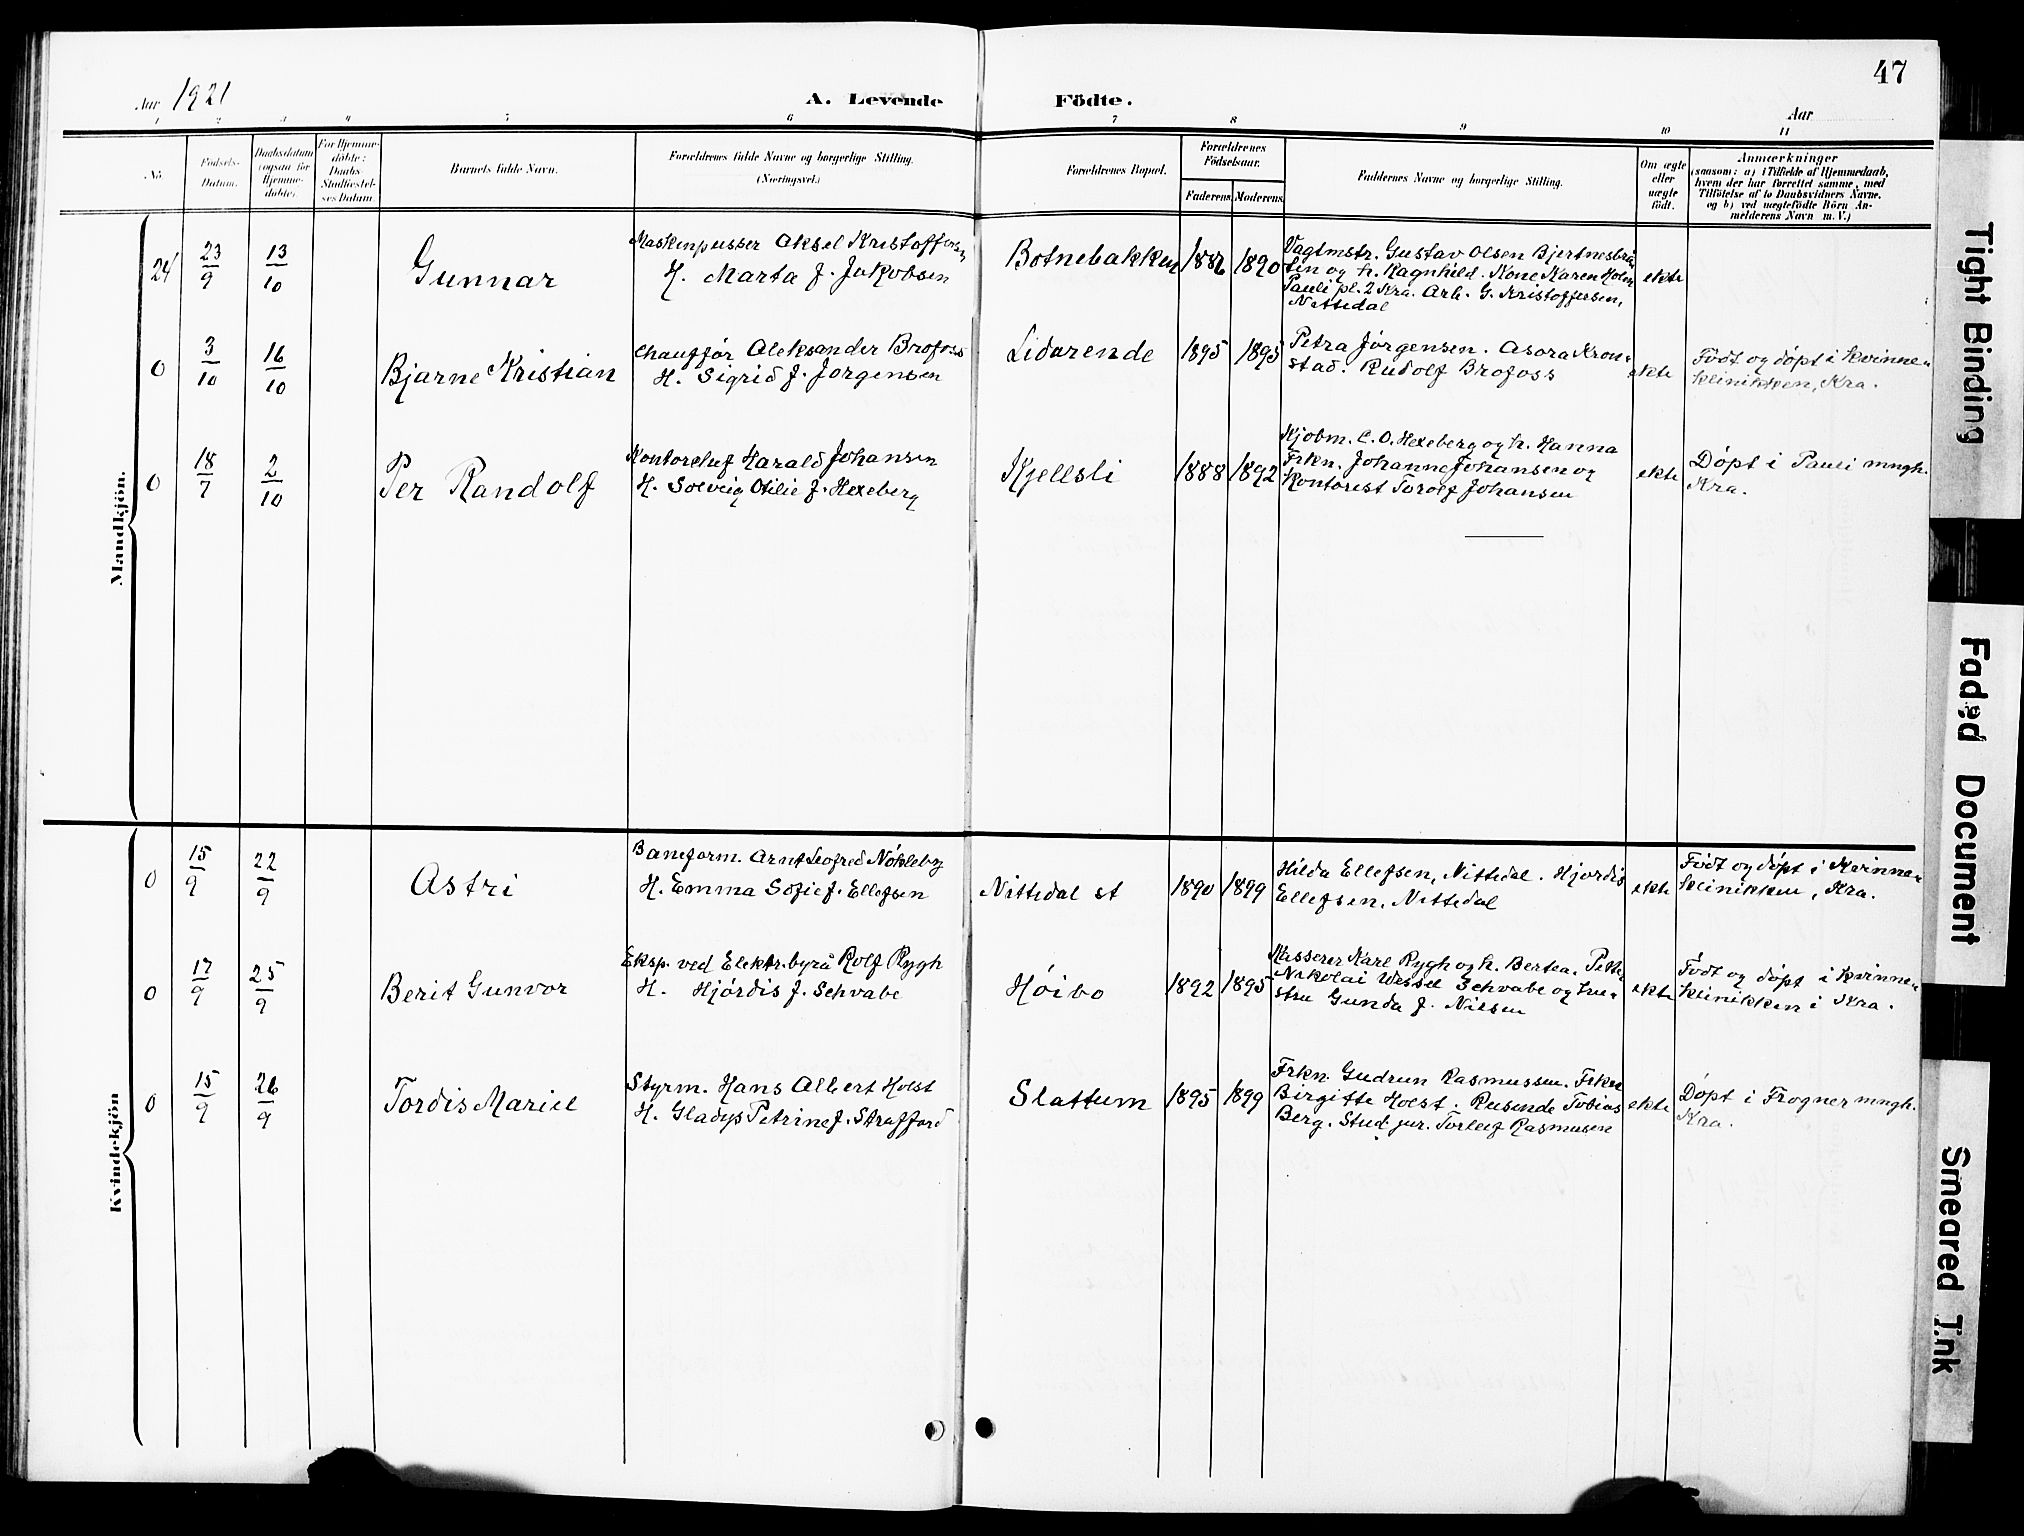 47
Aar 1921
A. Levende Födte.
Aar
1 2 3 4 5 6 7 8 9 10 11
No.
Födsels-
Datum.
Daabsdatum
(ogsaa for
Hjemme-
döbte).
For Hjemme-
döbte:
Daabs-
Stadfæstel-
ses Datum.
Barnets fulde Navn.
Forældrenes fulde Navne og borgerlige Stilling.
(Næringsvei.)
Forældrenes Bopæl.
Forældrenes
Födselsaar.
Faderens
Moderens
Faddernes Navne og borgerlige Stilling.
Om ægte
eller
uægte
født.
Anmærkninger
(saasom: a) i Tilfælde af Hjemmedaab,
hvem der har forrettet samme, med
Tilföielse af to Daabsvidners Navne.
og b) ved uægtefödte Börn An-
melderens Navn m. V.)
Mandkjön.
24
23/9
13/10
Gunnar
Maskinpusser Aksel Kristoffersen
H. Marta f. Jakobsen
Botnebakken
1886
1890
Vagtmstr. Gustav Olsen Bjertnesbrå-
ten og h. Ragnhild. Kone Karen Holm
Pauli pl. 2 Kra. Arb. G. Kristoffersen,
Nittedal
ekte
0
3/10
16/10
Bjarne Kristian
Chauffør Aleksander Brofoss
H. Sigrid f. Jørgensen
Lidarende
1895
1895
Petra Jørgensen. Asora Kron-
stad. Rudolf Brofoss
ekte
Født og døpt i kvinne-
klinikken, Kra.
0
18/7
2/10
Per Randolf
Kontorchef Harald Johansen
H. Solveig Otilie f. Hexeberg
Kjellsli
1888
1892
Kjøbm. C. O. Hexeberg og h. Hanna
Frkn. Johanne Johansen og
Kontorist Torolf Johansen
ekte
Døpt i Pauli mngh.
Kra.
Kvindekjön
0
15/9
22/9
Astri
Baneform. Arnt Leofred Nøkleby
H. Emma Sofie f. Ellefsen
Nittedal st
1890
1899
Hilda Ellefsen, Nittedal. Hjørdis
Ellefsen, Nittedal
ekte
Født og døpt i Kvinne-
klinikken, Kra.
0
17/9
25/9
Berit Gunvor
Eksp. ved Elektr.byrå Rolf Rygh
H. Hjørdis f. Schvabe
Høibo
1892
1895
Kasserer Karl Rygh og h. Bertea.
Nikolai Wessel Schvabe og hu-
stru Gunda f. Nilsen
ekte
Født og døpt i kvinne-
klinikken i Kra.
0
15/9
26/9
Tordis Mariel
Styrm. Hans Albert Holst
H. Gladys Petrine f. Strafford
Slattum
1895
1899
Frkn. Gudrun Rasmussen. Frkn
Birgitte Holst. Reisende Tobias
Berg. Stud. jur. Torleif Rasmusen
ekte
Døpt i Frogner mngh.
Kra.
Tight Binding
Faded Document
Smeared Ink